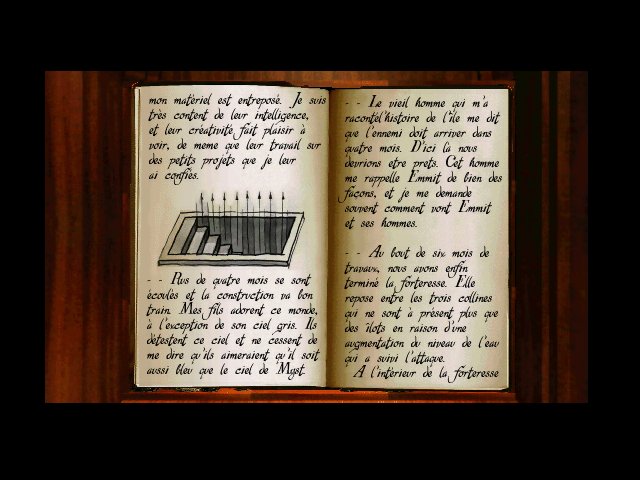 mon matériel est entreposé. Je suis
très content de leur intelligence,
et leur créativité fait plaisir à
voir, de meme que leur travail sur
des petits projets que je leur
ai confiés.
- - Plus de quatre mois se sont
écoulés et la construction va bon
train. Mes fils adorent ce monde,
à l'exception de son ciel gris. Ils
détestent ce ciel et ne cessent de
me dire qu'ils aimeraient qu'il soit
aussi bleu que le ciel de Myst.
- - Le vieil homme qui m'a
raconté l'histoire de l'île me dit
que l'ennemi doit arriver dans
quatre mois. D'ici là nous
devrions etre prets. Cet homme
me rappelle Emmit de bien des
façons, et je me demande
souvent comment vont Emmit
et ses hommes.
- - Au bout de six mois de
travaux, nous avons enfin
terminé la forteresse. Elle
repose entre les trois collines
qui ne sont à présent plus que
des îlots en raison d'une
augmentation du niveau de l'eau
qui a suivi l'attaque.
A l'intérieur de la forteresse